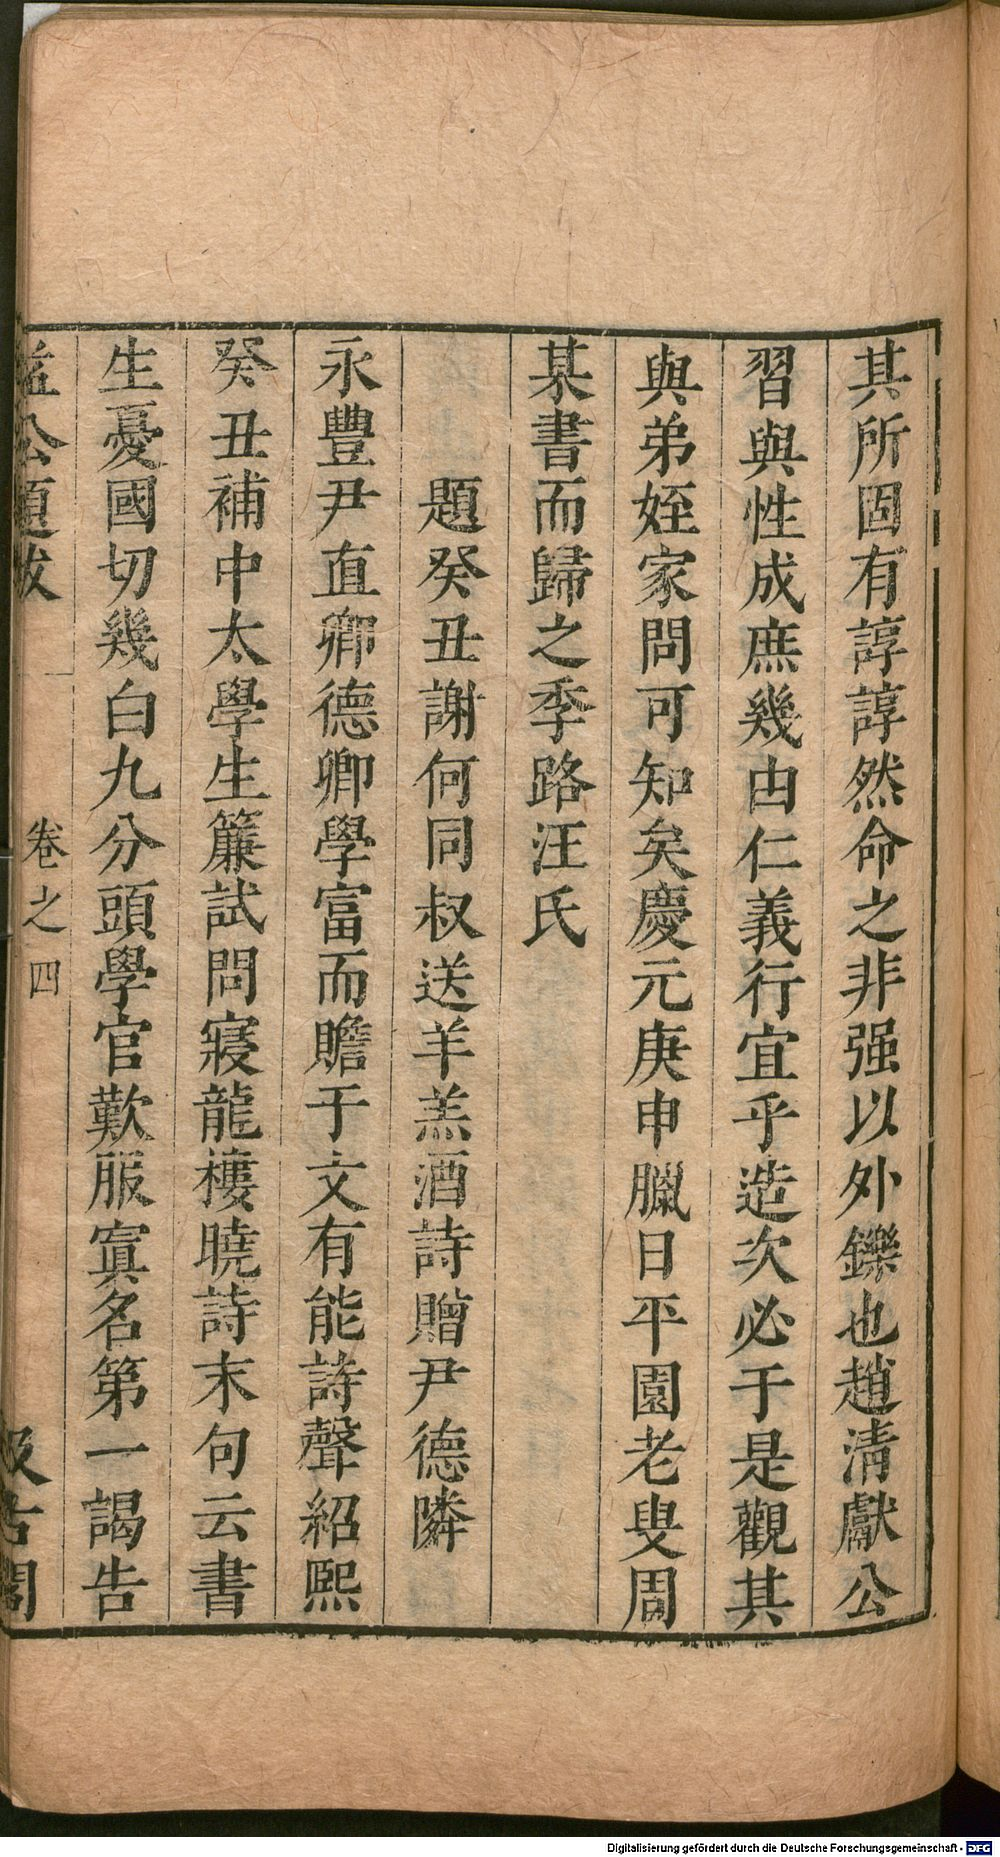 其所固有諄諄然命之非强以外鑠也趙清獻公
習與性成庶幾由仁義行宜乎造次必于是觀其
與弟姪家問可知矣慶元庚申臘日平園老叟周
某書而歸之季路汪氏
題癸丑謝何同叔送羊羔酒詩贈尹德隣
永豐尹直卿德卿學富而贍于文有能詩聲紹熙
癸丑補中太學生簾試問寢龍樓曉詩末句云書
生憂國切幾白九分頭學官歎服寘名第一謁告
益公題跋 卷之四 汲古閣
Digitalisierung gefördert durch die Deutsche Forschungsgemeinschaft - DFG